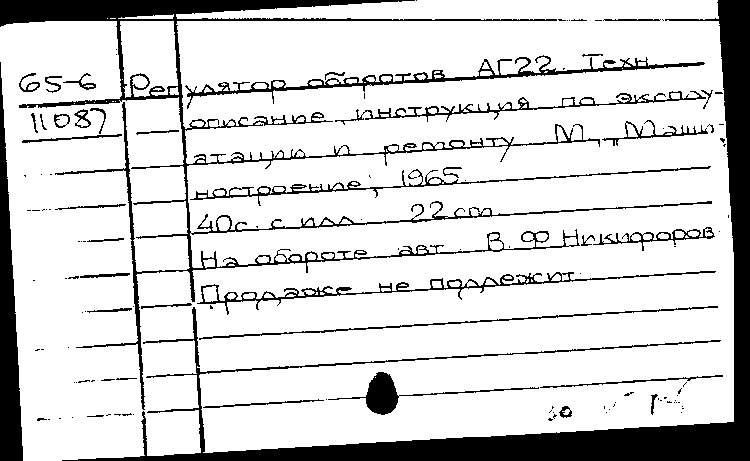 65-6 Регулятор оборотов АГ22. Техн.
11087 описание, инструкция по эксплу-
атации и ремонту М., "Маши-
ностроение", 1965.
40с. с илл. 22 см
На обороте авт. В. Ф. Никифоров
Продаже не подлежит.
30